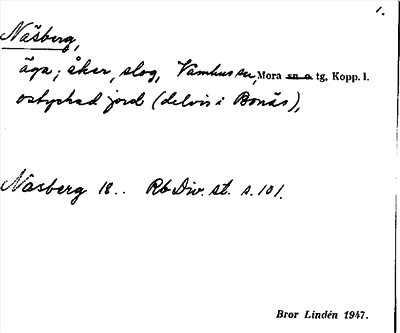 1.
Näsberg,
äga; åker, slog, Vamhus sn, Mora sn o. tg, Kopp. l.
ostyckad jord (delvis i Bonäs),
Nasberg 18.. Rb Div. st. s. 101.
Bror Lindén 1947.